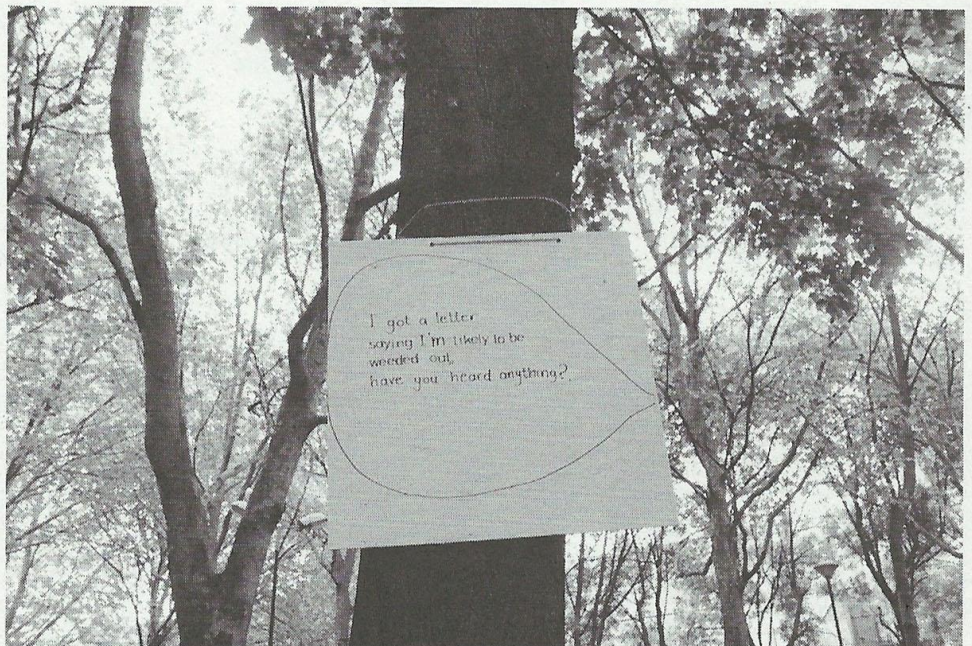 I got a letter
saying I'm likely to be
weeded out,
have you heard anything?